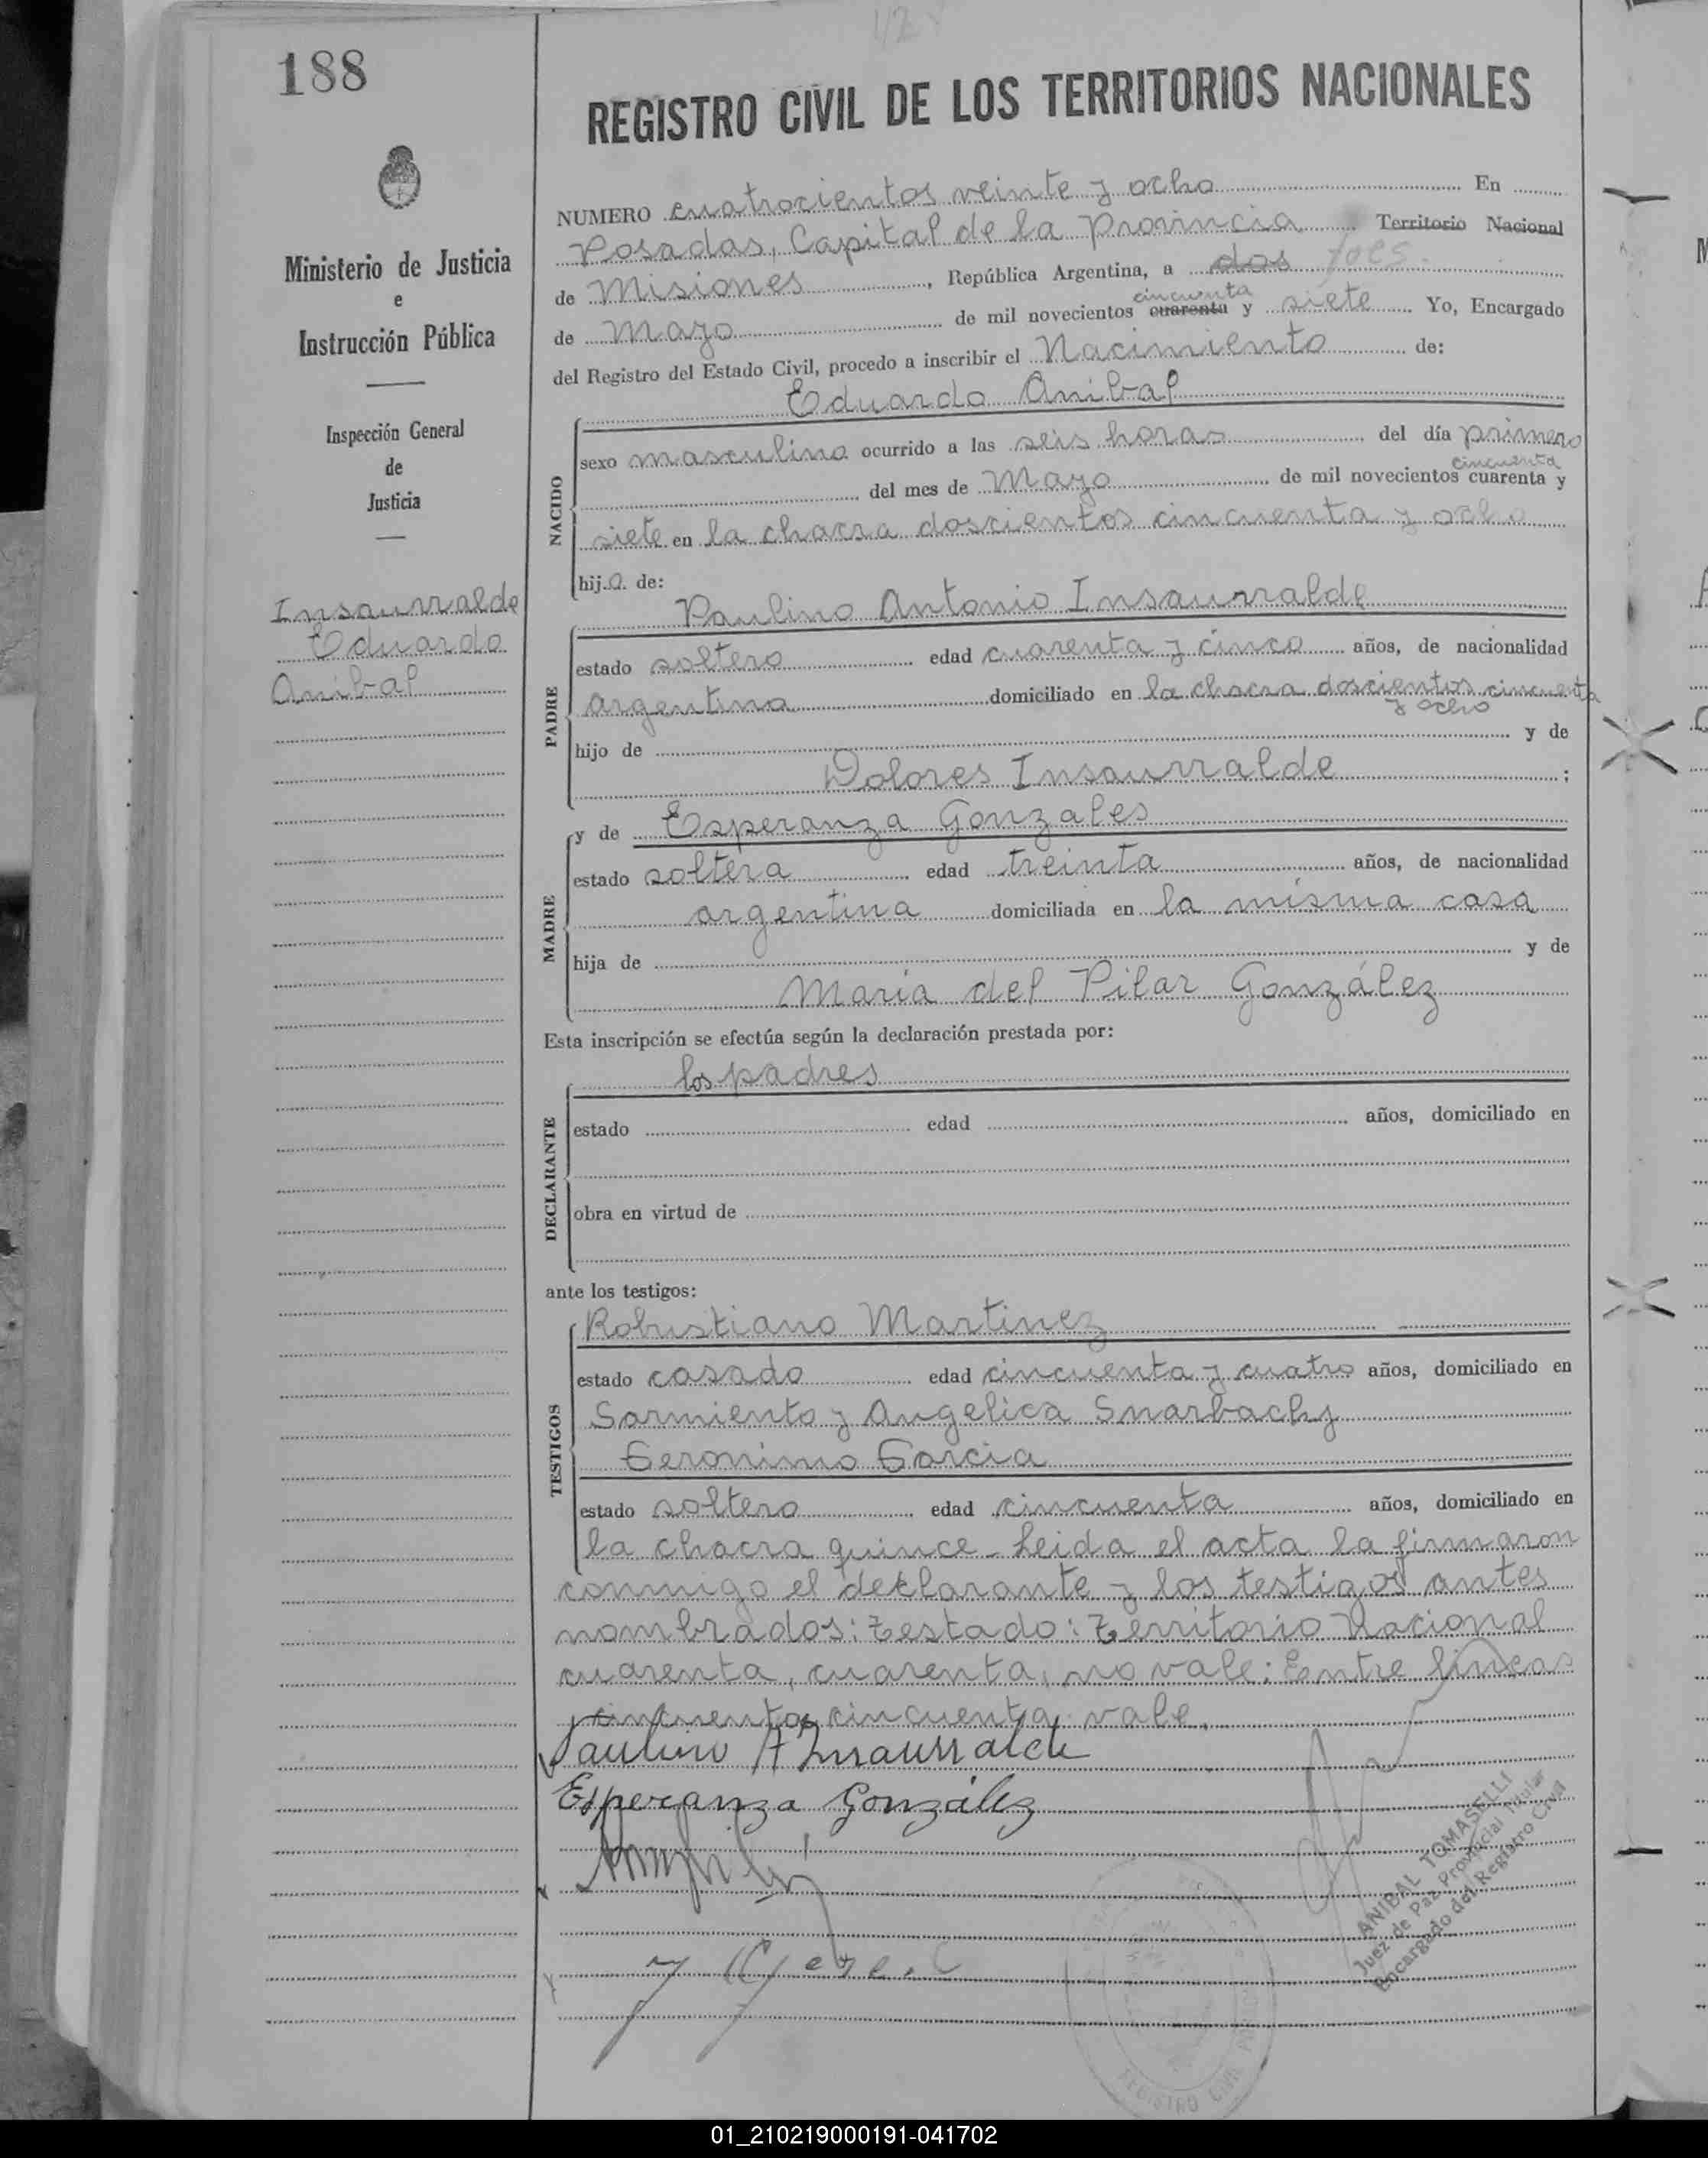 188
REGISTRO CIVIL DE LOS TERRITORIOS NACIONALES
Ministerio de Justicia
e
Instrucción Pública
Inspección General
de
Justicia
Insaurralde
Eduardo
Anibal
NUMERO cuatrocientos veinte y ocho En
Posadas, Capital de la Provincia Territorio Nacional
de Misiones, República Argentina, a dos
cincuenta
de Mayo de mil novecientos cuarenta y siete Yo, Encargado
del Registro del Estado Civil, procedo a inscribir el Nacimiento de:
Eduardo Anibal
NACIDO
sexo masculino ocurrido a las seis horas del día primero
cincuenta
del mes de Mayo de mil novecientos cuarenta y
siete en la chacra doscientos cincuenta y ocho
hijo. de:
Paulino Antonio Insaurralde
PADRE
estado soltero edad cuarenta y cinco años, de nacionalidad
argentina domiciliado en la chacra doscientos cincuenta
y ocho
hijo de y de
Dolores Insaurralde ;
y de Esperanza Gonzales
MADRE
estado soltera edad treinta años, de nacionalidad
argentina domiciliada en la misma casa
hija de y de
Maria del Pilar González
Esta inscripción se efectúa según la declaración prestada por:
los padres
DECLARANTE
estado edad años, domiciliado en
obra en virtud de
ante los testigos:
Robustiano Martinez
TESTIGOS
estado casado edad cincuenta y cuatro años, domiciliado en
Sarmiento y Angelica
Geronimo Garcia
estado soltero edad cincuenta años, domiciliado en
la chacra quince - Leida el acta la firmaron
conmigo el declarante y los testigos antes
nombrados: Testado: Territorio Nacional
cuarenta, cuarenta, no vale: Entre lineas
cincuenta, cincuenta vale.
Paulino A Insaurralde
Esperanza González
ANIBAL TOMASELLI
Juez de Paz Provincial Titular
Encargado del Registro Civil
REGISTRO CIVIL
01_210219000191-041702